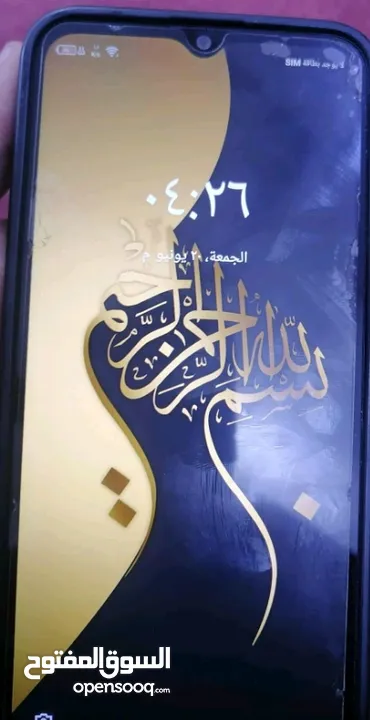 لا يوجد بطاقة SIM
٠٤:٢٦
الجمعة، ٢٠ يونيو م
بسم الله الرحمن الرحيم
السوق المفتوح
opensooq.com